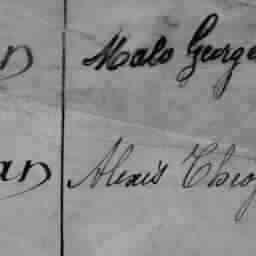 n Malo George
an Alexis Theo